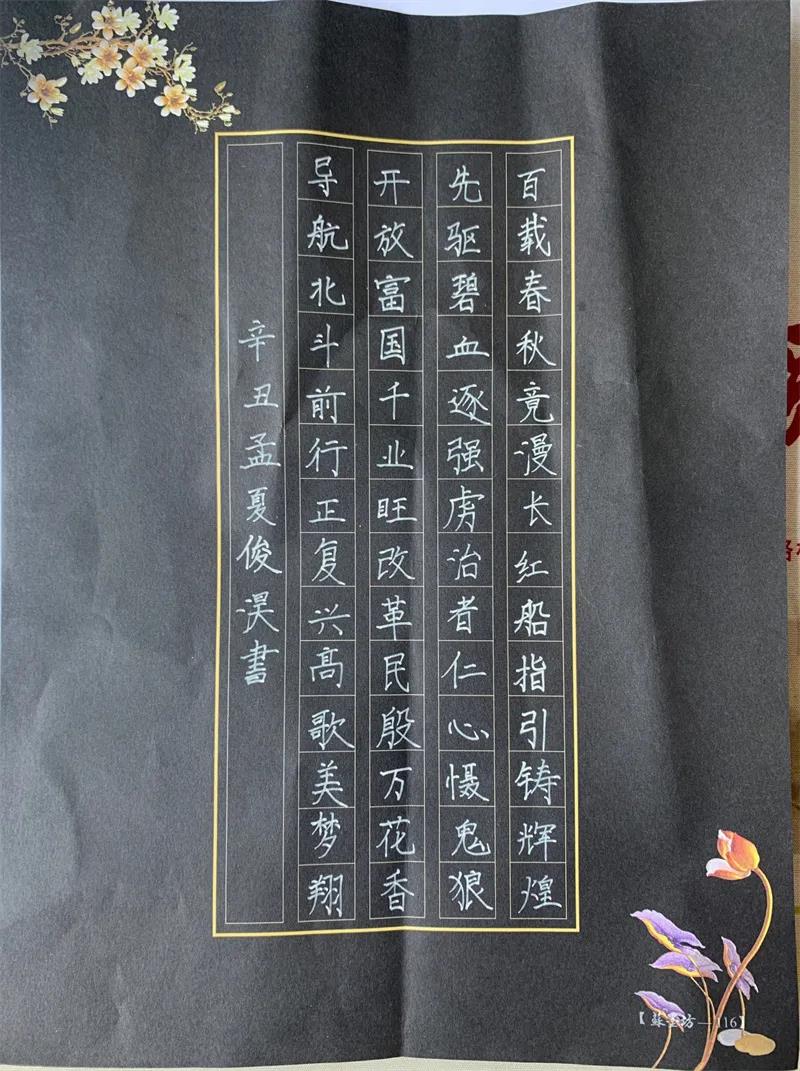 百载春秋竟漫长红船指引铸辉煌
先驱碧血逐强虏治者仁心慑鬼狼
开放富国千业旺改革民殷万花香
导航北斗前行正复兴高歌美梦翔
辛丑孟夏俊淏書